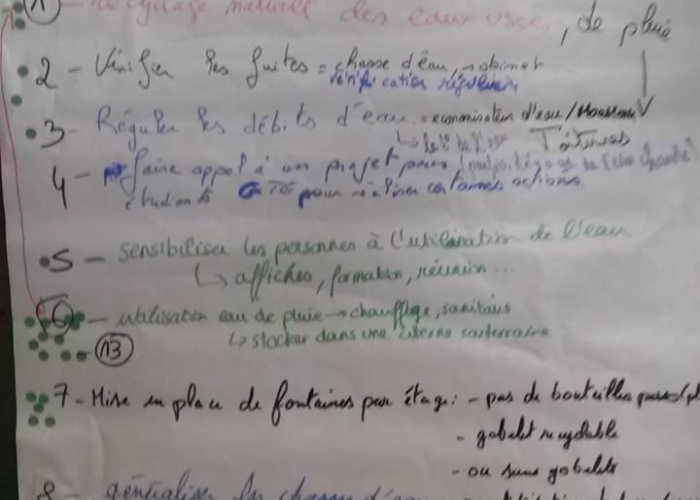 recyclage naturel des eaux usées, de pluie
2 - Vérifier les fuites = chasse d'eau, robinet
vérification régulière
3 - Réguler les débits d'eau = economisateur d'eau / Mousseur
Toitures
4 - faire appel à un projet pour
étudiants pour réaliser certaines actions.
5 - sensibiliser les personnes à l'utilisation de l'eau
↳ affiches, formation, réunion ...
6 - utilisation eau de pluie → chauffage, sanitaires
↳ stocker dans une citerne souterraine
13
7 - Mise en place de fontaines par étage : - pas de bouteilles
- gobelet recyclable
- ou sans gobelets
8 - généraliser les chasses d'eau